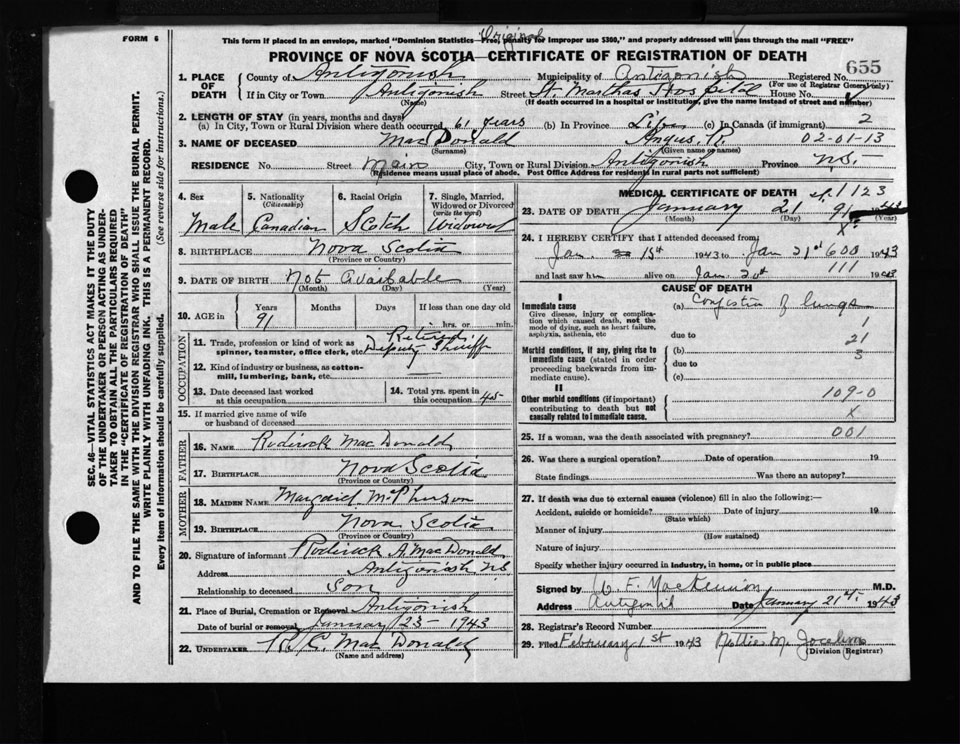 FORM 6
Original
This form if placed in an envelope, marked "Dominion Statistics—Free, penalty for improper use $300," and properly addressed will pass through the mail "FREE"
PROVINCE OF NOVA SCOTIA—CERTIFICATE OF REGISTRATION OF DEATH
655
1. PLACE OF DEATH
County of Antigonish Municipality of Antigonish Registered No.
(For use of Registrar General only)
If in City or Town Antigonish Street St. Marthas Hospital House No.
(Name) (If death occurred in a hospital or institution, give the name instead of street and number)
2. LENGTH OF STAY (in years, months and days)
(a) In City, Town or Rural Division where death occurred 61 years (b) In Province Life (c) In Canada (if immigrant) 2
3. NAME OF DECEASED MacDonald Angus, R. 02-01-13
(Surname) (Given name or names)
RESIDENCE No. Street Main City, Town or Rural Division Antigonish Province N.S.
(Residence means usual place of abode. Post Office Address for residents in rural parts not sufficient)
4. Sex
Male
5. Nationality
(Citizenship)
Canadian
6. Racial Origin
Scotch
7. Single, Married, Widowed or Divorced
(write the word)
Widowed
8. BIRTHPLACE Nova Scotia
(Province or Country)
9. DATE OF BIRTH Not available
(Month) (Day) (Year)
10. AGE in Years Months Days If less than one day old
91 hrs. or min.
OCCUPATION
11. Trade, profession or kind of work as spinner, teamster, office clerk, etc. Retired Deputy Sheriff
12. Kind of industry or business, as cotton-mill, lumbering, bank, etc.
13. Date deceased last worked at this occupation
14. Total yrs. spent in this occupation 45
15. If married give name of wife or husband of deceased
FATHER
16. NAME Rodirock MacDonald
17. BIRTHPLACE Nova Scotia
(Province or Country)
MOTHER
18. MAIDEN NAME Margaret McPherson
19. BIRTHPLACE Nova Scotia
(Province or Country)
20. Signature of informant Roderick A. MacDonald
Address Antigonish N.S
Relationship to deceased Son
21. Place of Burial, Cremation or Removal Antigonish
Date of burial or removal January 23- 1943
22. UNDERTAKER R. C. MacDonald
(Name and address)
MEDICAL CERTIFICATE OF DEATH
1123
23. DATE OF DEATH January 21 91 43
(Month) (Day) (Year)
X
24. I HEREBY CERTIFY that I attended deceased from
Jan. 15th 1943 to Jan 21st 600 1943
and last saw him alive on Jan. 20th 111 1943
CAUSE OF DEATH
I
Immediate cause (a) Congestion of lungs
Give disease, injury or complication which caused death, not the mode of dying, such as heart failure, asphyxia, asthenia, etc
1
due to 21
Morbid conditions, if any, giving rise to immediate cause (stated in order proceeding backwards from immediate cause).
(b) 3
due to
(c)
II
109-0
Other morbid conditions (if important) contributing to death but not causally related to immediate cause.
X
25. If a woman, was the death associated with pregnancy? 001
26. Was there a surgical operation? Date of operation 19
State findings Was there an autopsy?
27. If death was due to external causes (violence) fill in also the following:—
Accident, suicide or homicide? Date of injury 19
(State which)
Manner of injury
(How sustained)
Nature of injury
Specify whether injury occurred in industry, in home, or in public place
Signed by W. F. MacKinnon M.D.
Address Antigonish Date January 21st. 1943
28. Registrar's Record Number
29. Filed February 1st 1943 Nettie M. Jocelyn
(Division Registrar)
SEC. 46—VITAL STATISTICS ACT MAKES IT THE DUTY
OF THE UNDERTAKER OR PERSON ACTING AS UNDER-
TAKER TO OBTAIN ALL THE PARTICULARS REQUIRED
IN THE "CERTIFICATE OF REGISTRATION OF DEATH"
AND TO FILE THE SAME WITH THE DIVISION REGISTRAR WHO SHALL ISSUE THE BURIAL PERMIT.
WRITE PLAINLY WITH UNFADING INK. THIS IS A PERMANENT RECORD.
Every item of information should be carefully supplied. (See reverse side for instructions.)